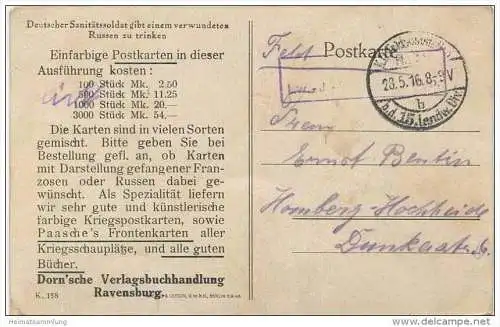 Deutscher Sanitätssoldat gibt einem verwundeten
Russen zu trinken
Einfarbige Postkarten in dieser
Ausführung kosten:
100 Stück Mk. 2.50
500 Stück Mk. 11.25
1000 Stück Mk. 20.—
3000 Stück Mk. 54.—
Die Karten sind in vielen Sorten
gemischt. Bitte geben Sie bei
Bestellung gefl. an, ob Karten
mit Darstellung gefangener Fran-
zosen oder Russen dabei ge-
wünscht. Als Spezialität liefern
wir sehr gute und künstlerische
farbige Kriegspostkarten, sowie
Paasche's Frontenkarten aller
Kriegsschauplätze, und alle guten
Bücher.
Dorn'sche Verlagsbuchhandlung
Ravensburg.
K. 158
Feld Postkarte
28.5.16. 8-9V
b
d. 15. Landw. Div.
Ernst Bentin
Homberg-Hochheide
heimatsammlung.de